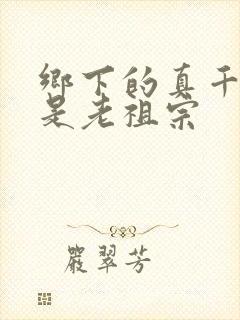 鄉下的真千
是老祖宗
嚴翠芳